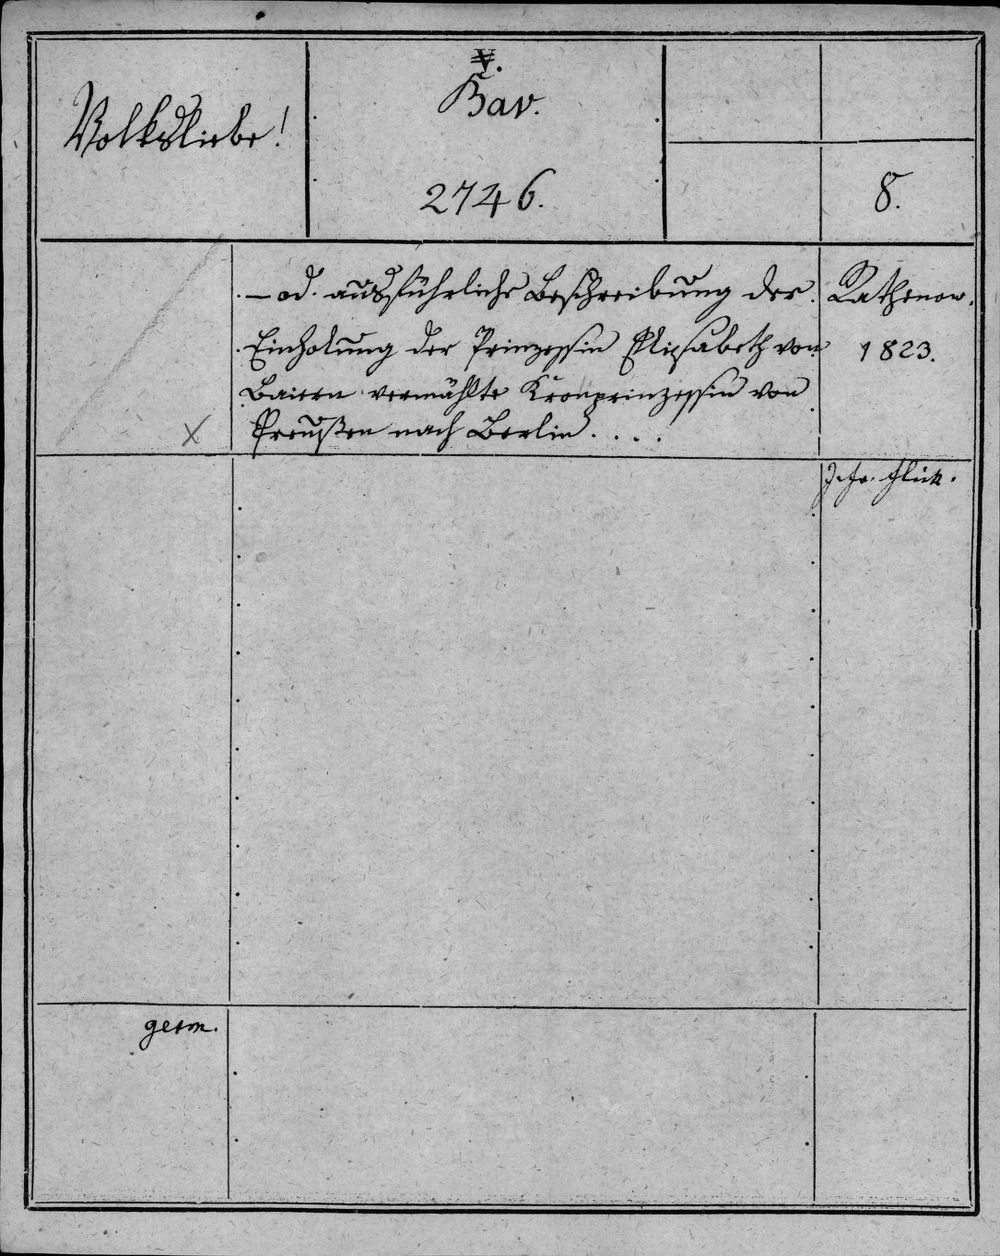 Volksliebe!
V.
Bav.
2746.
8.
– od. ausführliche Beschreibung der
Einholung der Prinzessin Elisabeth von
Baiern vermählte Kronprinzessin von
Preußen nach Berlin. . . .
Rathenow.
1823.
X
germ.